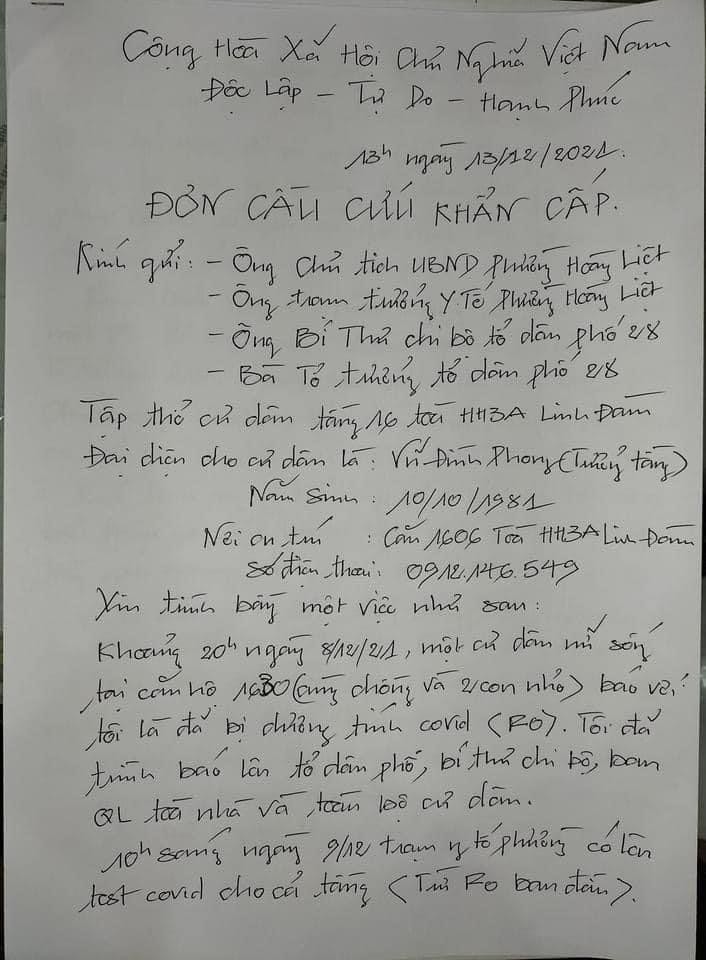 Cộng Hoà Xã Hội Chủ Nghĩa Việt Nam
Độc Lập - Tự Do - Hạnh Phúc
13h ngày 13/12/2021.
ĐƠN CẦU CỨU KHẨN CẤP.
Kính gửi: - Ông Chủ tịch UBND phường Hoàng Liệt
- Ông trạm trưởng Y.Tế phường Hoàng Liệt
- Ông Bí Thư chi bộ tổ dân phố 28
- Bà Tổ trưởng tổ dân phố 28
Tập thể cư dân tầng 16 toà HH3A Linh Đàm
Đại diện cho cư dân là: Vũ Đình Phong (Trưởng tầng)
Năm sinh: 10/10/1981
Nơi cư trú: Căn 1606 Toà HH3A Linh Đàm
Số điện thoại: 0912.146.549
Xin trình bày một việc như sau:
Khoảng 20h ngày 8/12/21, một cư dân nữ sống
tại căn hộ 1630 (cùng chồng và 2 con nhỏ) báo với
tôi là đã bị dương tính covid (F0). Tôi đã
trình báo lên tổ dân phố, bí thư chi bộ, ban
QL toà nhà và toàn bộ cư dân.
10h sáng ngày 9/12 trạm y tế phường có lên
test covid cho cả tầng (Trừ F0 ban đầu).